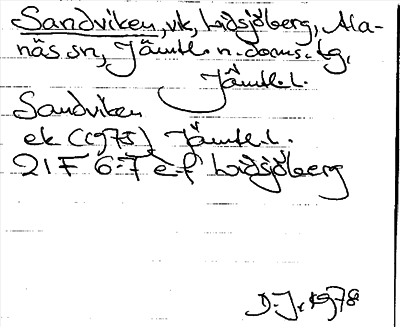 Sandviken, vk, Lidsjöberg, Ala-
näs sn, Jämtl. n. doms. tg,
Jämtl. l.
Sandviken
ek (1975) Jämtl. l.
21F 6-7 e-f Lidsjöberg
D. J. 1978